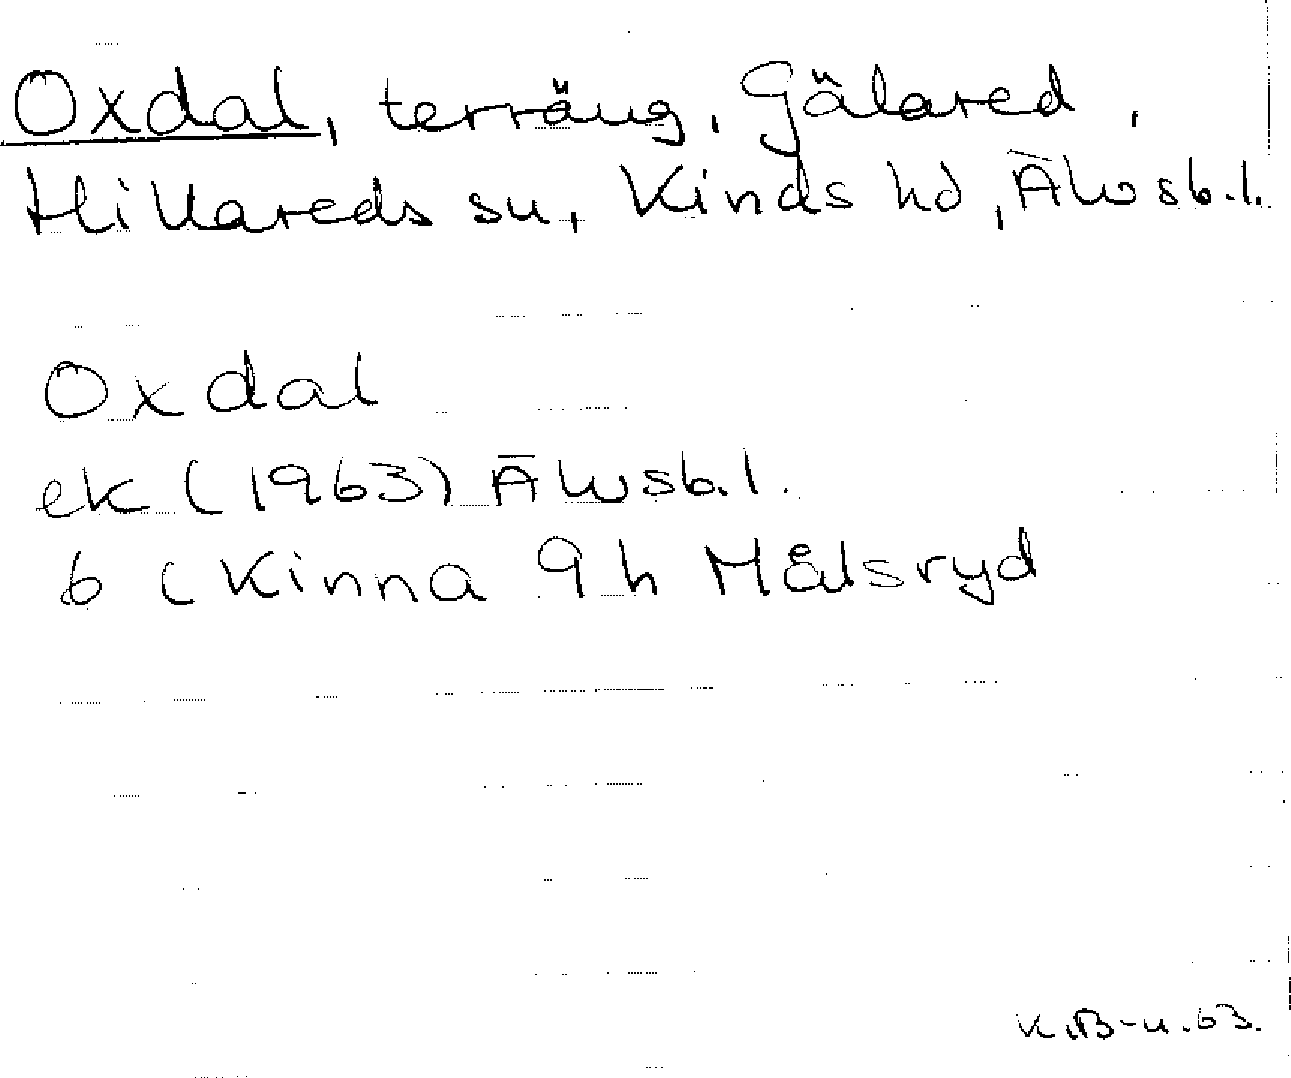 Oxdal, terräng, Gälared,
Hillareds sn, Kinds hd, Älvsb.l.
Oxdal
ek (1963) Älvsb.l.
6 C Kinna 9 h Målsryd
K.B-n.63.